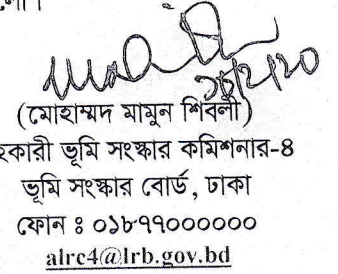 (মোহাম্মদ মামুন শিবলী)
হকারী ভূমি সংস্কার কমিশনার-৪
ভূমি সংস্কার বোর্ড, ঢাকা
ফোন ঃ ০১৮-৭৭০০০০০০
alrc4@lrb.gov.bd